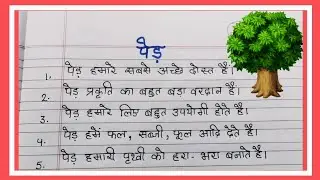 पेड़
1. पेड़ हमारे सबसे अच्छे दोस्त हैं।
2. पेड़ प्रकृति का बहुत बड़ा वरदान हैं।
3. पेड़ हमारे लिए बहुत उपयोगी होते हैं।
4. पेड़ हमें फल, सब्जी, फूल आदि देते हैं।
5. पेड़ हमारी पृथ्वी को हरा-भरा बनाते हैं।